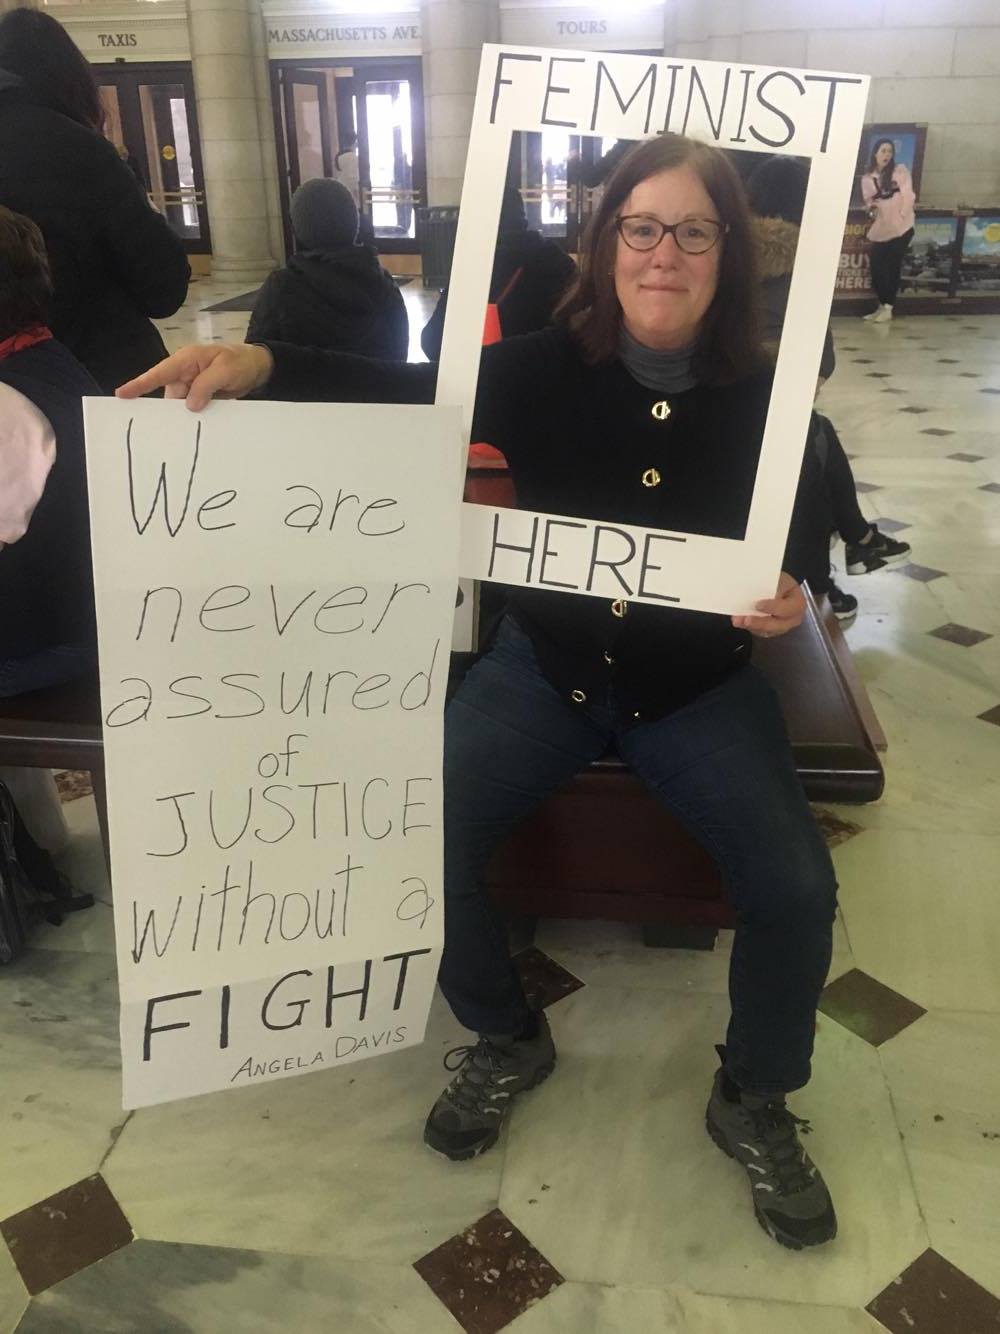 TAXIS
MASSACHUSETTS AVE
TOURS
FEMINIST
HERE
We are
never
assured
of
JUSTICE
without a
FIGHT
ANGELA DAVIS
BUY
HERE